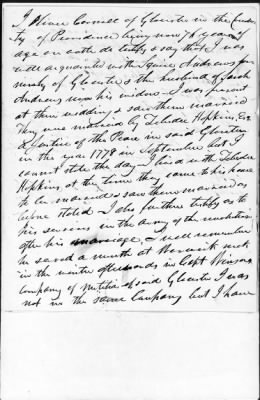 I Oliver Cornell of Glocester in the Coun
ty of Providence being now 76 years of
age on oath do testify & say that I was
well acquainted with Squire Andrews for
merly of Glocester & the husband of Sarah
Andrews now his widow I was present
at their wedding & saw them married
They were married by Zebedee Hopkins, Esq.
a Justice of the Peace in said Glocester
in the year 1778 in September but I
cannot state the day I lived with Zebedee
Hopkins at the time they came to his house
to be married & saw them married as
before stated I also further testify as to
his services in the Army of the revolution
after his marriage, I well remember
he served a month at Warwick neck
in the winter afterwards in Capt Winsors
Company of Militia of said Glocester I was
not in the same Company but I have